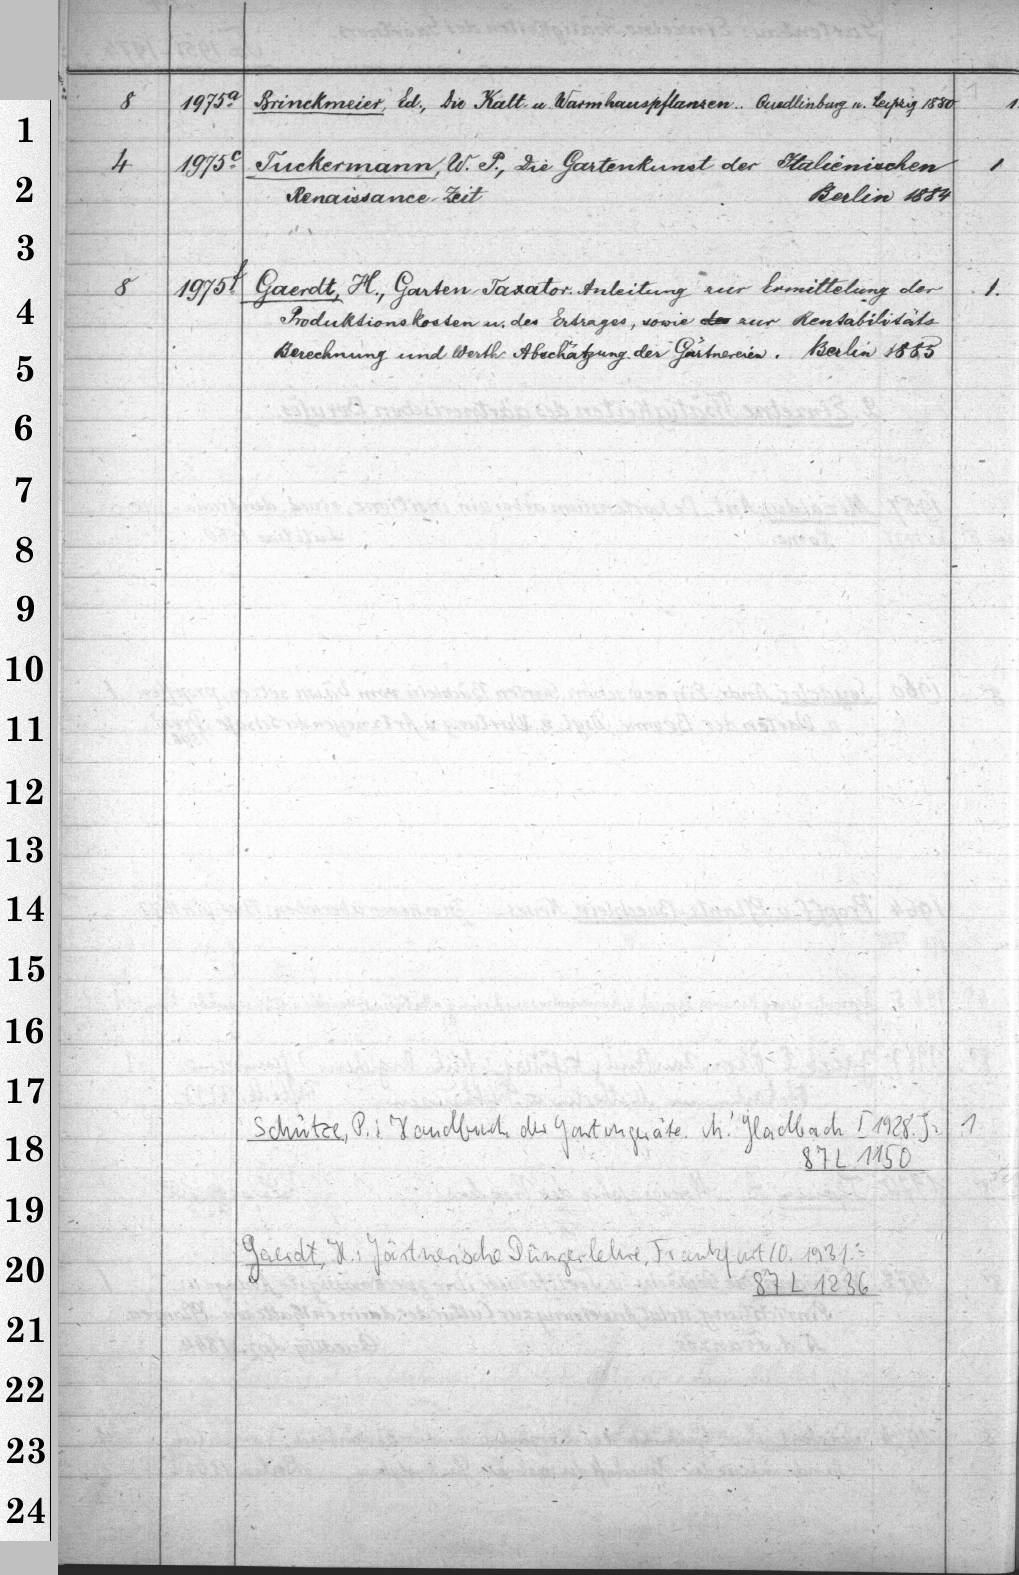 8 1975a Brinckmeier, Ed., Die Kalt- u. Warmhauspflanzen.. Quedlinburg u. Leipzig 1880 1.
4 1975c Tuckermann, W. P., Die Gartenkunst der Italienischen 1
Renaissance-Zeit Berlin 1884
8 1975f Gaerdt, H., Garten-Taxator. Anleitung zur Ermittelung der 1.
Produktionskosten u. des Ertrages, sowie zur Rentabilitäts-
Berechnung und Werth-Abschätzung der Gärtnereien. Berlin 1885
Schütze, P.: Handbuch der Gartengeräte. M.'Gladbach I 1928. 1
87 L 1150
Gaerdt, H.: Gärtnerische Düngerlehre, Frankfurt/O. 1931.
87 L 1236
1
2
3
4
5
6
7
8
9
10
11
12
13
14
15
16
17
18
19
20
21
22
23
24